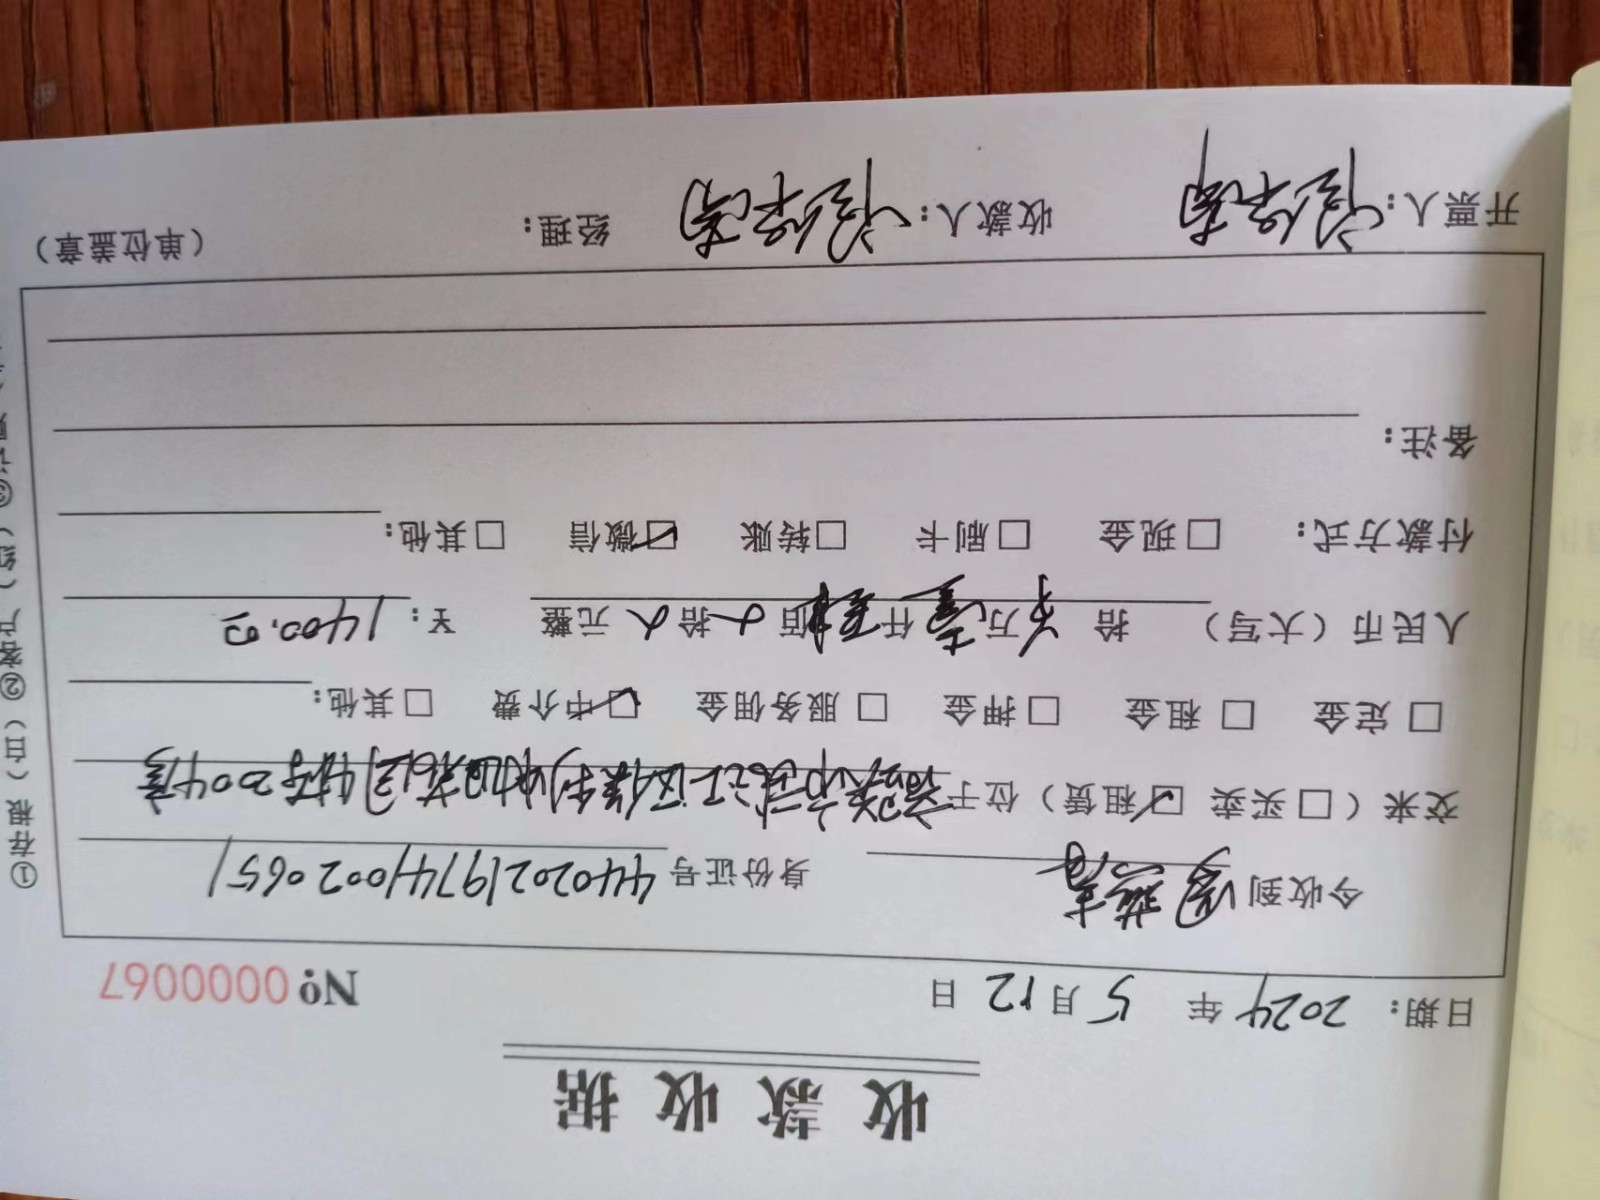 收款收据
日期： 2024 年 5 月 12 日 № 0000067
今收到 身份证号 440202197441002065 1
交来（□买卖 ☑租赁）位于韶关市武江区 2004房
□ 定金 □ 租金 □ 押金 □ 服务佣金 ☑中介费 □其他：
人民币（大写） 拾 万壹仟肆佰 拾 元整 ¥：1400.00
付款方式： □现金 □刷卡 □转账 ☑微信 □其他：
备注：
开票人： 收款人： 经理： （单位盖章）
①存根（白）②客户（红）③